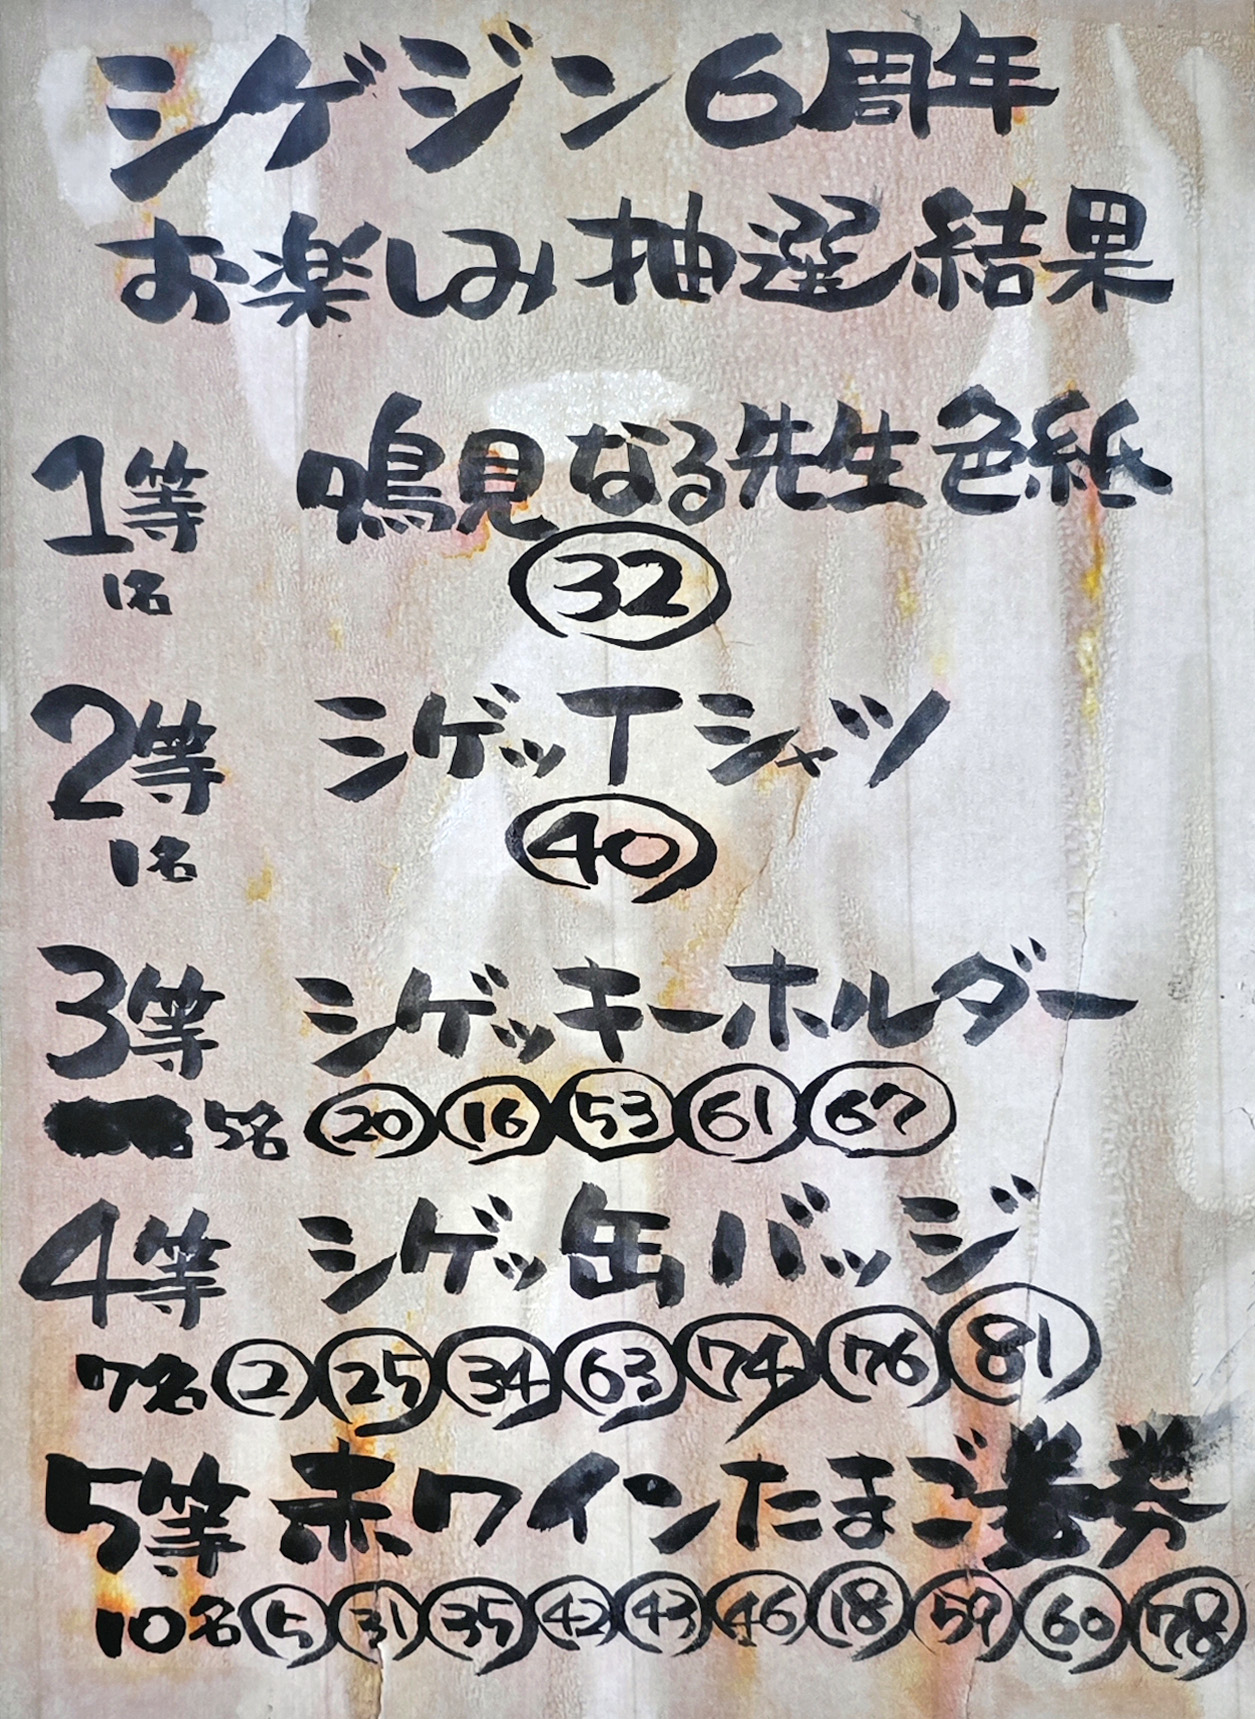 シゲジン6周年
お楽しみ抽選結果
1等 鳴見なる先生色紙
1名 32
2等 シゲッTシャツ
1名 40
3等 シゲッキーホルダー
5名 20 16 53 61 67
4等 シゲッ缶バッジ
7名 2 25 34 63 74 76 81
5等 赤ワインたまご券
10名 5 31 35 42 43 46 18 59 60 78